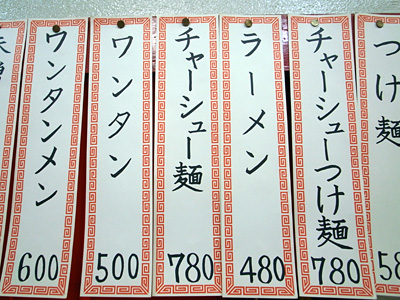 つけ麺
58
チャーシューつけ麺
780
ラーメン
480
チャーシュー麺
780
ワンタン
500
ワンタンメン
600